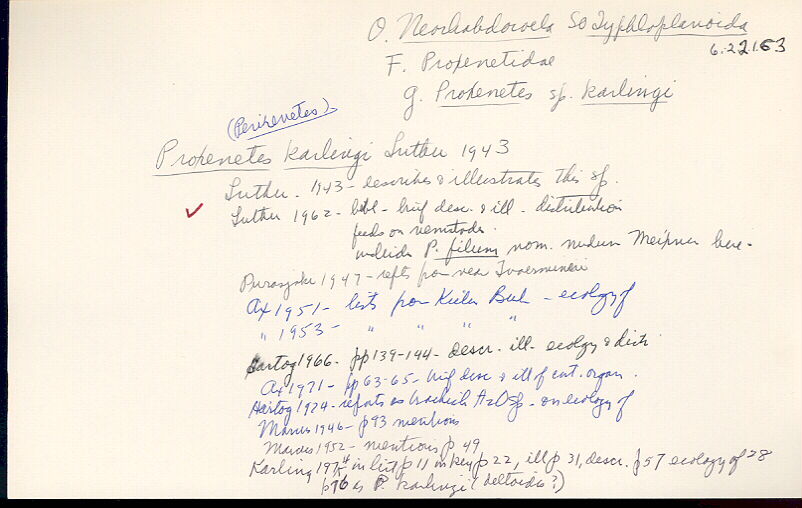 O. Neorhabdocoela SO Typhloplanoida
6.22163
F. Proxenetidae
g. Proxenetes sp. karlingi
(Perixenetes)
Proxenetes karlingi Luther 1943
Luther. 1943 - describes & illustrates this sp.
✓ Luther 1962 - bibl - brief desc. & ill - distribution
feeds on nematode.
includes P. filum nom. nudum Meixner here -
1947 - repts from near Tvaerminne
Ax 1951 - lists from Kieler Buch - ecology of
" 1953 - " " " "
Hartog 1966 - pp 139-144 - descr. ill. ecolgy & distr
Ax 1971 - pp 63-65 - brief desc & ill of cut. organ.
Hartog 1974 - reports as brackish sp - on ecology of
Marcus 1946 - p 93 mentions
Marcus 1952 - mentions p 49
Karling 1974 in list p 11 in key p 22, ill p 31, descr. p 57 ecology of 28
p76 as P. karlingi (deltoides?)